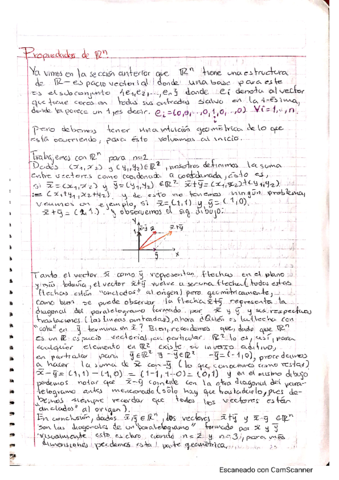 Propiedades de ℝⁿ
Ya vimos en la sección anterior que ℝⁿ tiene una estructura
de ℝ-espacio vectorial donde una base para este
es el subconjunto {e₁,e₂,...,eₙ} donde eᵢ denota al vector
que tiene ceros en todas sus entradas salvo en la i-ésima,
donde aparece un 1 es decir. eᵢ=(0,0,...,0,1,0,...,0) ∀i=1,..,n.
Pero debemos tener una intuición geométrica de lo que
está ocurriendo, para esto volvamos al inicio.
Trabajemos con ℝⁿ para n=2.
Dados (x₁,x₂) y (y₁,y₂)∈ℝ², nosotros definimos la suma
entre vectores como coordenada a coordenada, esto es,
si x̄=(x₁,x₂) y ȳ=(y₁,y₂)∈ℝ² x̄+ȳ=(x₁,x₂)+(y₁,y₂)
=(x₁+y₁,x₂+y₂) y de esto no tenemos ningún problema,
veamos un ejemplo, si x̄=(1,1) y ȳ=(1,0).
x̄+ȳ=(2,1) y observemos el sig. dibujo:
y
x̄ x̄+ȳ
ȳ x
Tanto el vector x̄ como ȳ representan flechas en el plano
y más, todavía, el vector x̄+ȳ vuelve a ser una flecha (todas estas
flechas están "ancladas" al origen) pero geométricamente,
como bien se puede observar la flecha x̄+ȳ representa la
diagonal del paralelogramo formado por x̄ y ȳ y sus respectivas
traslaciones (las líneas punteadas), ahora ¿Quién es la flecha con
"cola" en ȳ termina en x̄? Bien, recordemos que, dado que ℝⁿ
es un ℝ espacio vectorial, en particular ℝ² lo es, así, para
cualquier elemento en ℝ² existe su inverso aditivo,
en particular para ȳ∈ℝ² ∃ -ȳ∈ℝ² -ȳ=(-1,0), procedamos
a hacer la suma de x̄ con -ȳ (lo que conocemos como restar)
x̄-ȳ=(1,1)-(1,0)=(1-1,1-0)=(0,1) y en el mismo dibujo
podemos notar que x̄-ȳ coincide con la otra diagonal del para-
lelogramo antes mencionado (sólo hay que trasladarlo, pues de-
bemos siempre recordar que todos los vectores están
"anclados" al origen).
En conclusión, dados x̄,ȳ∈ℝⁿ, los vectores x̄+ȳ y x̄-ȳ ∈ℝⁿ
son las diagonales de un "paralelogramo" formado por x̄ y ȳ
visualmente esto es claro cuando n=2 y n=3, para más
dimensiones perdemos esta parte geométrica.
Escaneado con CamScanner